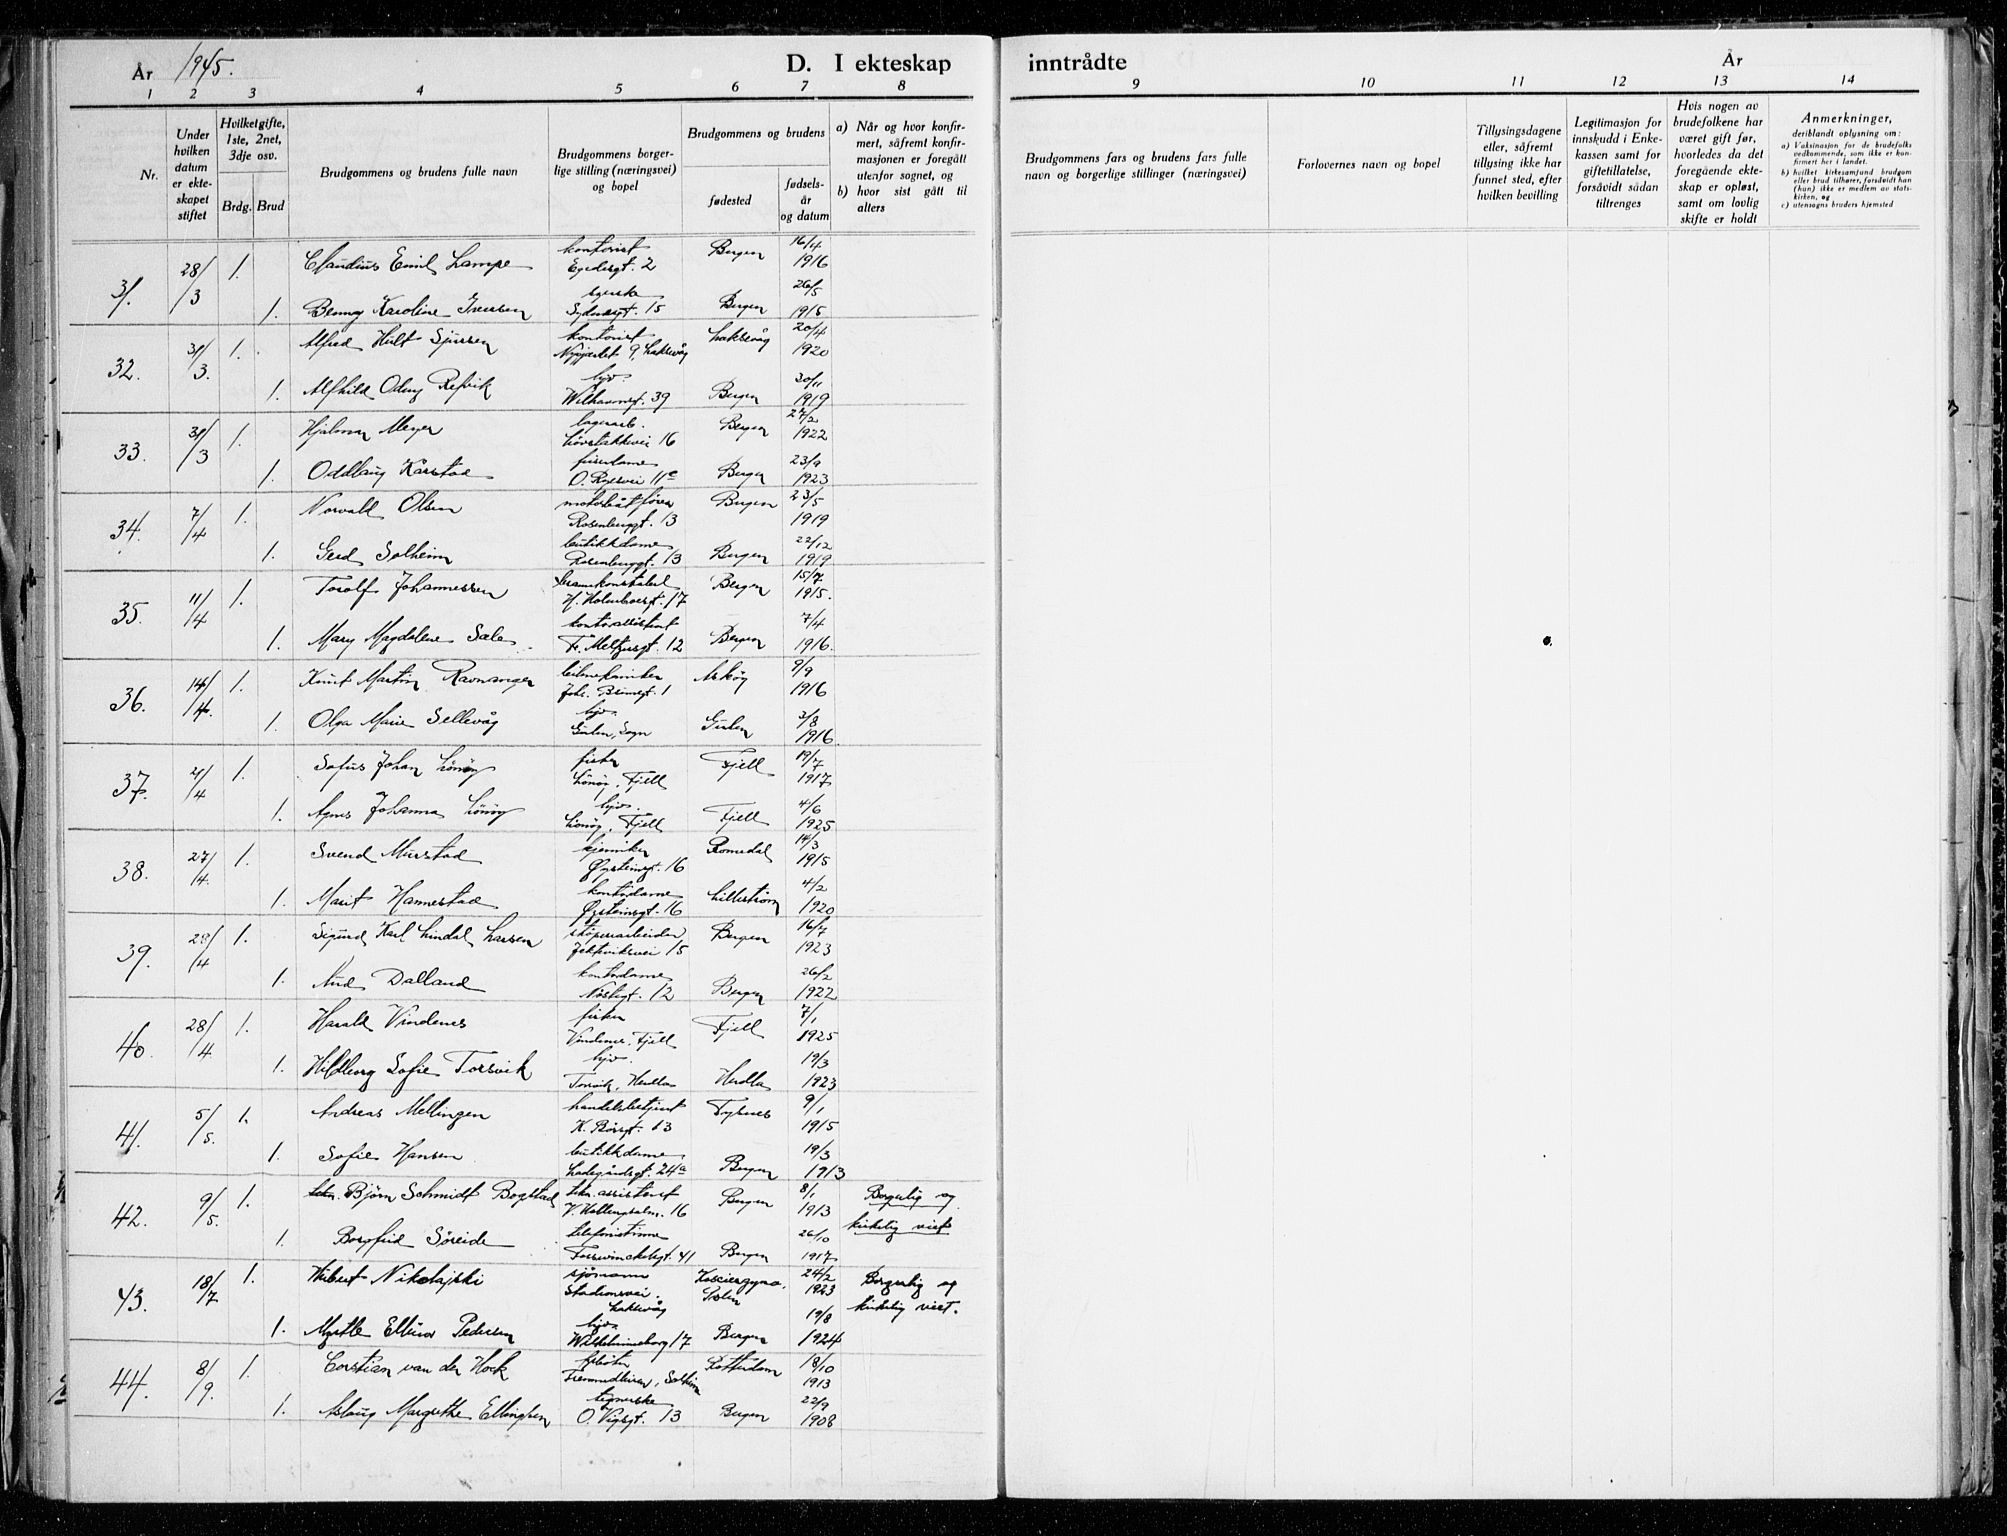 År 1945.
D. I ekteskap inntrådte
År
1 2 3 4 5 6 7 8 9 10 11 12 13 14
Nr.
Under hvilken datum er ekteskapet stiftet
Hvilket gifte, 1ste, 2net, 3dje osv.
Brdg. Brud
Brudgommens og brudens fulle navn
Brudgommens borgerlige stilling (næringsvei) og bopel
Brudgommens og brudens
fødested
fødselsår og datum
a) Når og hvor konfirmert, såfremt konfirmasjonen er foregått utenfor sognet, og
b) hvor sist gått til alters
Brudgommens fars og brudens fars fulle navn og borgerlige stillinger (næringsvei)
Forlovernes navn og bopel
Tillysingsdagene eller, såfremt tillysing ikke har funnet sted, efter hvilken bevilling
Legitimasjon for innskudd i Enkekassen samt for giftetillatelse, forsåvidt sådan tiltrenges
Hvis nogen av brudefolkene har været gift før, hvorledes da det foregående ekteskap er opløst, samt om lovlig skifte er holdt
Anmerkninger, deriblandt oplysning om:
a) Vaksinasjon for de brudefolks vedkommende, som ikke er konfirmert her i landet.
b) hvilket kirkesamfund brudgom eller brud tilhører, forsåvidt han (hun) ikke er medlem av statskirken, og
c) utensogns bruders hjemsted
31. 28/3 1. Claudius Emil Lampe kontorist Bergen 16/4 1916
Egedesgt. 2
1. Benny Karoline Iversen syerske Bergen 26/5 1915
Sydnesgt. 15
32. 31/3. 1. Alfred Hult Sjursen kontorist Laksevåg 20/4 1920
9, Laksevåg
1. Alfhild Odny Refvik hjv. Bergen 30/11 1919
39
33. 31/3 1. Hjalmar Meyer lagerarb. Bergen 27/2 1922
Løvstakkvei 16
1. Oddlaug Kårstad Bergen 23/9 1923
O. Ryesvei 11c
34. 7/4 1. Norvald Olsen motorbåtfører Bergen 23/5 1919
Rosenberggt. 13
1. Gerd Solheim butikkdame Bergen 22/12 1919
Rosenberggt. 13
35. 11/4 1. Torolf Johannessen brannkonstabel Bergen 15/7 1915.
H. Holmboesgt. 17
1. Mary Magdalene Sæle kontorassistent Bergen 7/4 1916.
F. Meltzersgt. 12
36. 14/4. 1. Knut Martin Ravnanger bilmekaniker Askøy 9/9 1916
Joh. Brunsgt. 1
1. Olga Marie Sellevåg hjv. Gulen 3/8 1916.
Gulen, Sogn
37. 21/4 1. Sofus Johan Lønøy fisker Fjell 19/7 1917
Lønøy, Fjell
1. Agnes Johanna Lønøy hjv. Fjell 4/6 1925
Lønøy, Fjell
38. 27/4. 1. Svend Murstad kjemiker Romedal 14/3 1915
Øysteinsgt. 16
1. Marit Hannestad kontordame Lillestrøm 4/2 1920
Øysteinsgt. 16
39. 28/4 1. Sigurd Karl Lindal Larsen støperiarbeider Bergen 16/7 1923
Jekteviksvei 15
1. Aud Dalland kontordame Bergen 26/2 1922
Nøstegt. 12
40. 28/4 1. Harald Vindenes fisker Fjell 7/1 1925
Vindenes, Fjell
1. Hildborg Sofie Torsvik hjv. Herdla 19/3 1923
Torsvik, Herdla
41. 5/5. 1. Andreas Mellingen handelsbetjent Tysnes 9/1 1915
K. Børsgt. 13
1. Sofie Hansen butikkdame Bergen 19/3 1913
Ladegårdsgt. 24a
42. 9/5. 1. Bjørn Schmidt Bogstad tekn. assistent Bergen 8/1 1913 Borgerlig og
V. Hollendsalm. 16 kirkelig viet
1. Borgfrid Søreide telefonistinne Bergen 26/10 1917
41
43. 18/7 1. Hubert Nikolajski sjømann Koscierzyna, 24/2 1923 Borgerlig og
Stadionsvei, Polen kirkelig viet.
Laksevåg
1. Myrtle Ellinor Pedersen hjv. Bergen 19/8 1924
Wilhelmineborg 17
44. 8/9. 1. Corstian van der Hoek Rotterdam 18/10 1913
1. Aslaug Margrethe Ellingsen tegnerske Bergen 22/9 1908
O. Vigsgt. 13